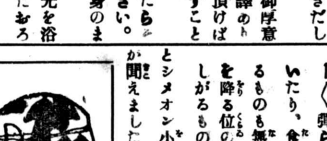 きだし
御厚意
頂けば
すこと
たら
さい。
身のま
光を浴
いたり、食
るものも無
を降る位の
しがるもの
とシメオン小
が聞えました